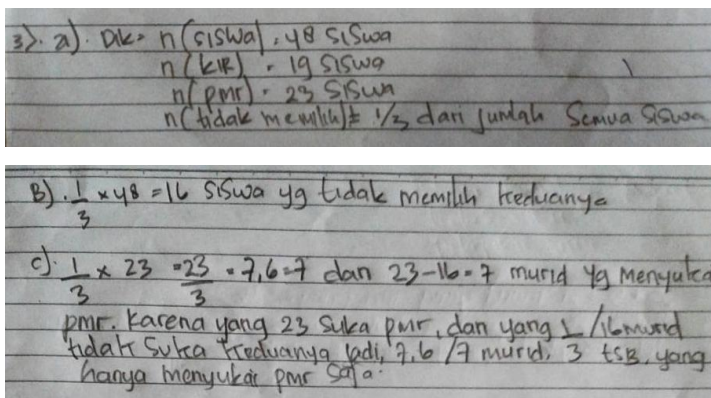 3). a). Dik = n (siswa) = 48 siswa
n (KIR) = 19 siswa
n (pmr) = 23 siswa
n (tidak memilih) = 1/3 dari jumlah semua siswa
B). 1/3 x 48 = 16 siswa yg tidak memilih keduanya
c). 1/3 x 23 = 23/3 = 7,6 = 7 dan 23 - 16 = 7 murid yg menyukai
pmr. Karena yang 23 suka pmr, dan yang 1 /16 murid
tidak suka keduanya jadi, 7,6 /7 murid, 3 tsb, yang
hanya menyukai pmr saja.